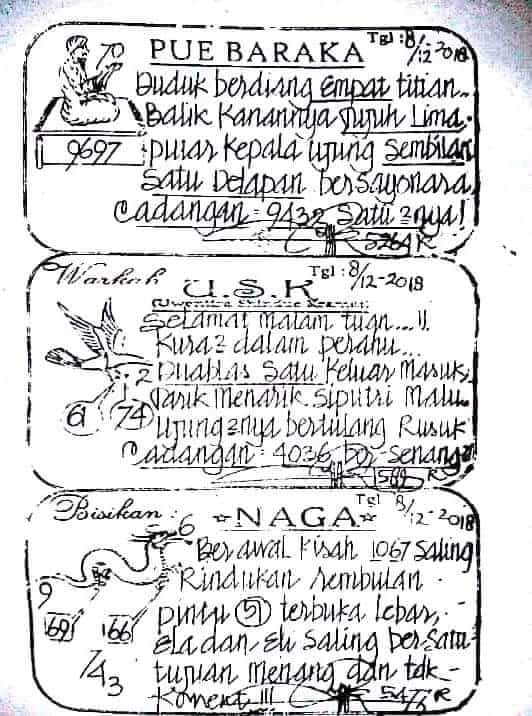 Tgl: 8/12-2018
70 PUE BARAKA
Duduk berdiang Empat titian..
Balik Kanannya Tujuh Lima.
9697 putar Kepala ujung Sembilan
Satu Delapan bersayonara
Cadangan = 9432 Satu 2nya!
5264 R
Warkah Tgl: 8/12-2018
U.S.K
Selamat malam tuan...!!
Kura2 dalam perahu...
2 Duablas Satu Keluar Masuk,
61 74 Tarik Menarik Siputri Malu..
ujung2nya bertulang Rusuk
Cadangan = 4036 ber-senang2
R
Bisikan: Tgl 8/12-2018
6 ☆NAGA☆
Berawal Kisah 1067 Saling
9 Rindukan rembulan.
69 166 pintu 51 terbuka lebar,
Ela dan Eli Saling bersatu
743 tujuan menang dan tdk-
Koment!!!
R